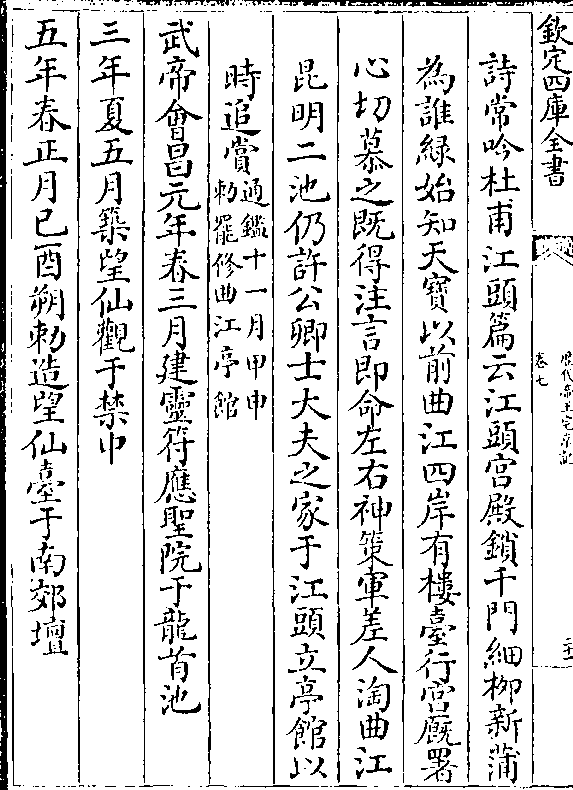 欽定四庫全書
歷代帝王宅京記
卷七
詩常吟杜甫江頭篇云江頭宮殿鎖千門細柳新蒲
為誰緑始知天寶以前曲江四岸有樓臺行宮廨署
心切慕之既得注言即命左右神策軍差人淘曲江
昆明二池仍許公卿士大夫之家于江頭立亭館以
時追賞通鑑十一月甲申
勅罷修曲江亭館
武帝會昌元年春三月建靈符應聖院于龍首池
三年夏五月築望仙觀于禁中
五年春正月己酉朔勅造望仙臺于南郊壇